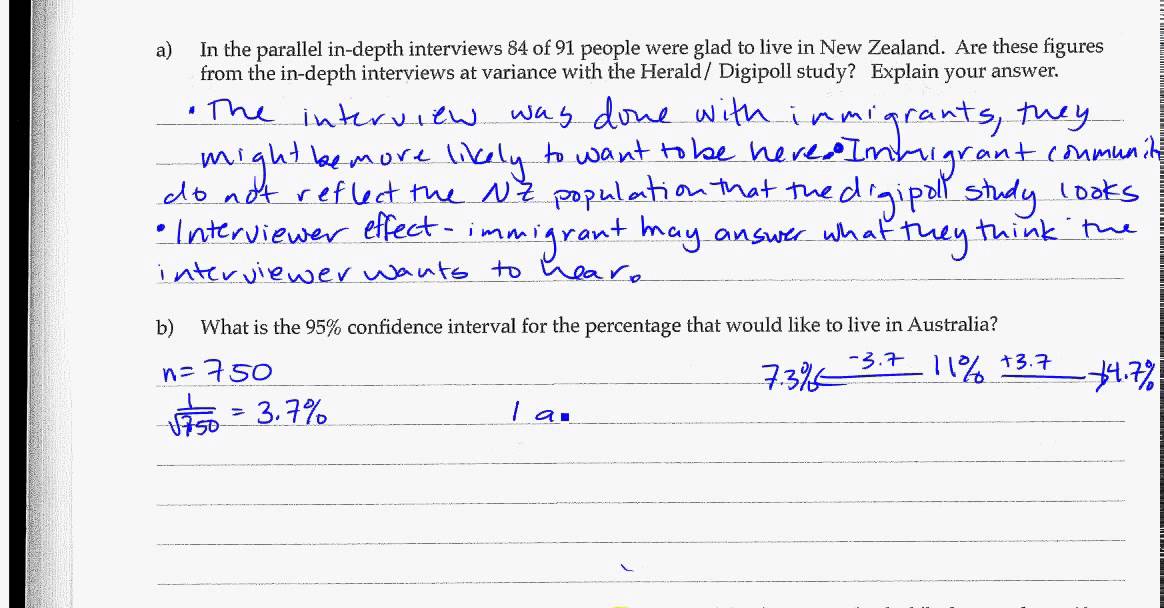 a) In the parallel in-depth interviews 84 of 91 people were glad to live in New Zealand. Are these figures
from the in-depth interviews at variance with the Herald/ Digipoll study? Explain your answer.
• The interview was done with immigrants, they
might be more likely to want to be here. • Immigrant communit
do not reflect the NZ population that the digipoll study looks
• Interviewer effect - immigrant may answer what they think the
interviewer wants to hear.
b) What is the 95% confidence interval for the percentage that would like to live in Australia?
n = 750 7.3% ← -3.7 11% +3.7 → 14.7%
1/√750 = 3.7% 1 a.